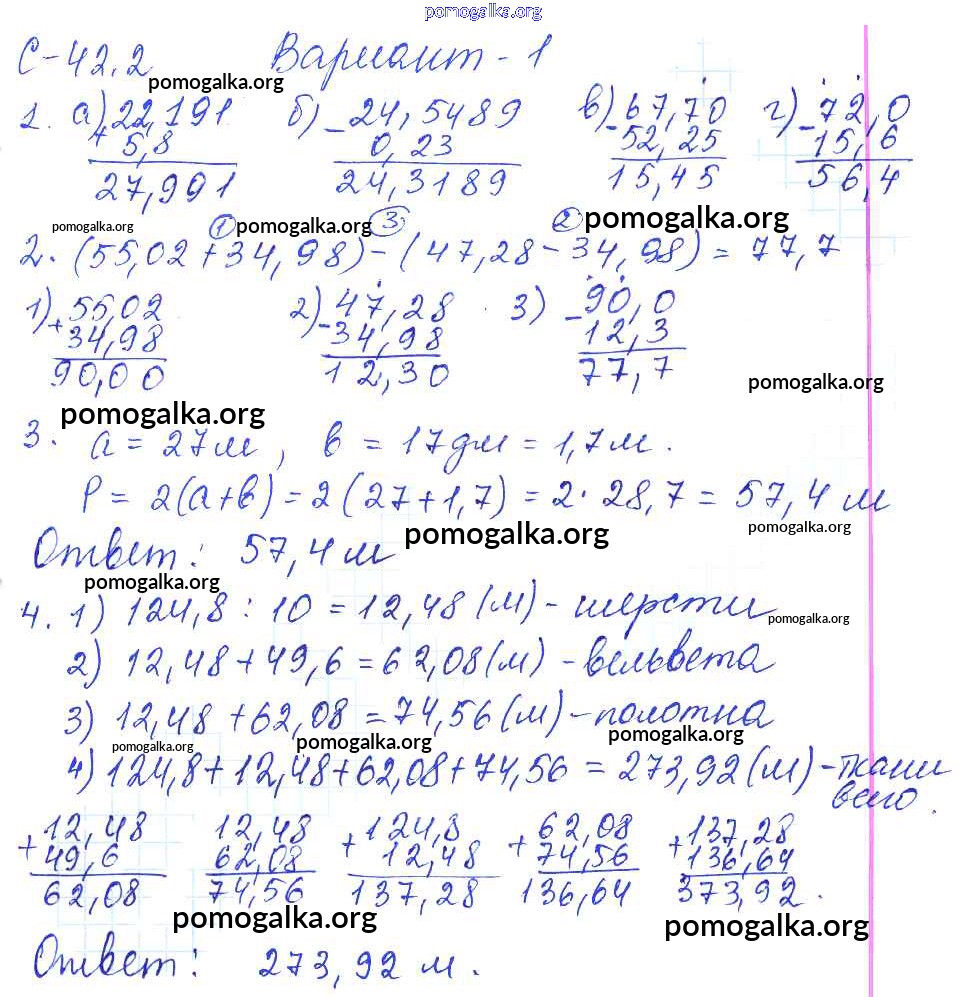 pomogalka.org
С-42.2 Вариант-1
pomogalka.org
1. а) 22,191 б) 24,5489 в) 67,70 г) 72,0
+ 5,8 - 0,23 - 52,25 - 15,6
27,991 24,3189 15,45 56,4
pomogalka.org 1 pomogalka.org 3 2 pomogalka.org
2. (55,02+34,98)-(47,28-34,98)=77,7
1) 55,02 2) 47,28 3) 90,0
+ 34,98 - 34,98 - 12,3
90,00 12,30 77,7
pomogalka.org
pomogalka.org
3. а = 27м, в = 17дм = 1,7м.
Р = 2(а+в) = 2(27+1,7) = 2·28,7 = 57,4 м
pomogalka.org pomogalka.org
Ответ: 57,4 м
pomogalka.org
4. 1) 124,8 : 10 = 12,48 (м) - шерсти
pomogalka.org
2) 12,48+49,6=62,08(м) - вельвета
3) 12,48+62,08=74,56(м)-полотна
pomogalka.org pomogalka.org
4) 124,8+12,48+62,08+74,56 = 273,92(м)-ткани
всего.
+ 12,48 12,48 + 124,8 + 62,08 + 137,28
49,6 62,08 12,48 74,56 136,64
62,08 74,56 137,28 136,64 373,92.
pomogalka.org pomogalka.org
Ответ: 273,92 м.